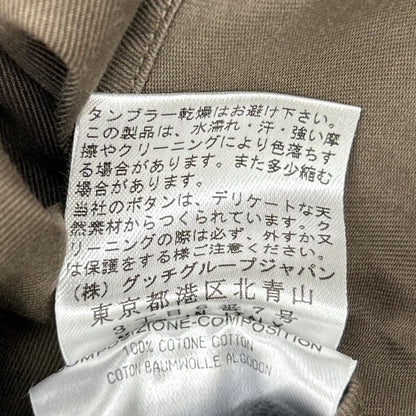 タンブラー乾燥はお避け下さい。
この製品は、水濡れ・汗・強い摩
擦やクリーニングにより色落ちす
る場合があります。また多少縮む
場合があります。
当社のボタンは、デリケートな天
然素材からつくられています。ク
リーニングの際は必ず、外すか又
は保護をする様ご注意ください。
(株) グッチグループジャパン
東京都港区北青山
COMPOSIZIONE-COMPOSITION
100% COTONE COTTON
COTON BAUMWOLLE ALGODON